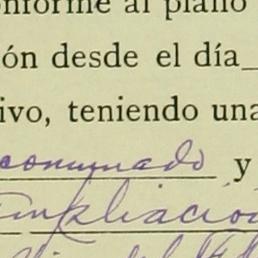 onforme al plano
ón desde el día
ivo, teniendo una
y
Ampliación
del